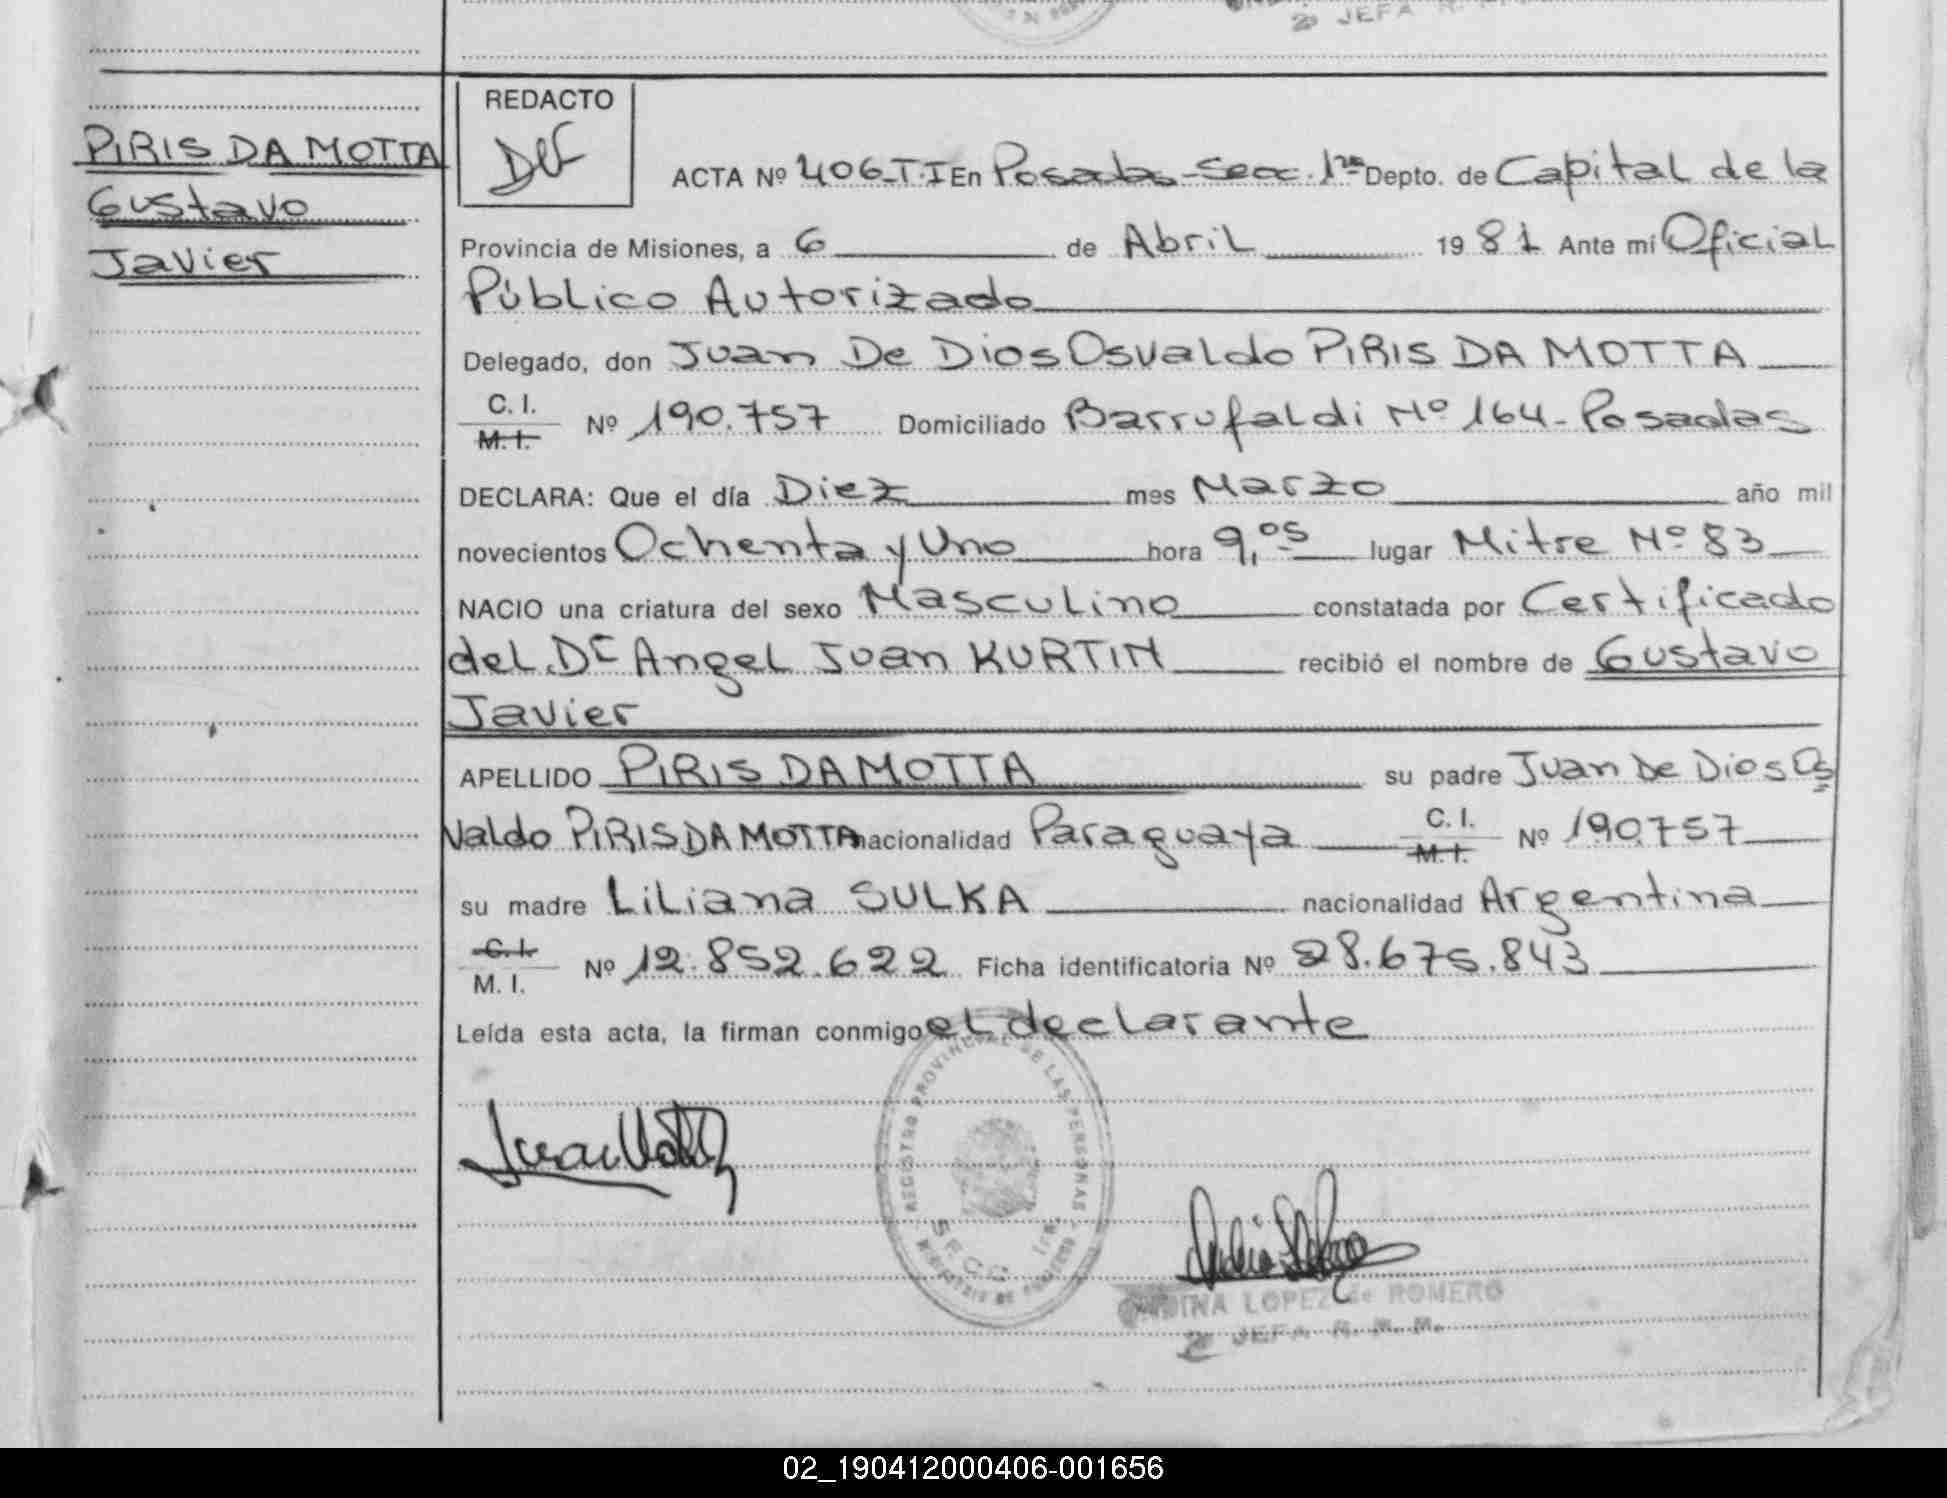 JEFA
PIRIS DA MOTTA
Gustavo
Javier
REDACTO
ACTA Nº 406-T.I En Posadas-Secc. 1ra Depto. de Capital de la
Provincia de Misiones, a 6 de Abril 1981 Ante mí Oficial
Público Autorizado
Delegado, don Juan De Dios Osvaldo PIRIS DA MOTTA
C. I.
M. I. Nº 190.757 Domiciliado Barrufaldi Nº 164-Posadas
DECLARA: Que el día Diez mes Marzo año mil
novecientos Ochenta y Uno hora 9,05 lugar Mitre Nº 83
NACIO una criatura del sexo Masculino constatada por Certificado
del Dr Angel Juan KURTIN recibió el nombre de Gustavo
Javier
APELLIDO PIRIS DA MOTTA su padre Juan De Dios Os
valdo PIRIS DA MOTTA nacionalidad Paraguaya C. I. M. I. Nº 190757
su madre Liliana SULKA nacionalidad Argentina
C. I.
M. I. Nº 12.852.622 Ficha identificatoria Nº 28.675.843
Leída esta acta, la firman conmigo el declarante
REGISTRO PROVINCIAL DE LAS PERSONAS
SECC. 1ra.
LOPEZ de ROMERO
JEFA R. M. M.
02_190412000406-001656